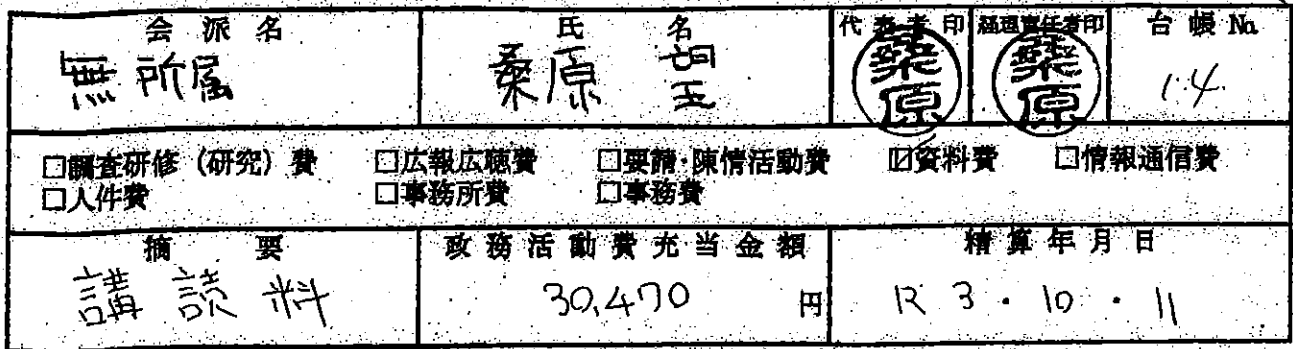 会派名 氏名 代表者印 経理責任者印 台帳No.
無所属 桑原 桑原 桑原 1.4
□調査研修(研究)費 □広報広聴費 □要請・陳情活動費 ☑資料費 □情報通信費
□人件費 □事務所費 □事務費
摘要 政務活動費充当金額 精算年月日
講読料 30,470円 R3・10・11